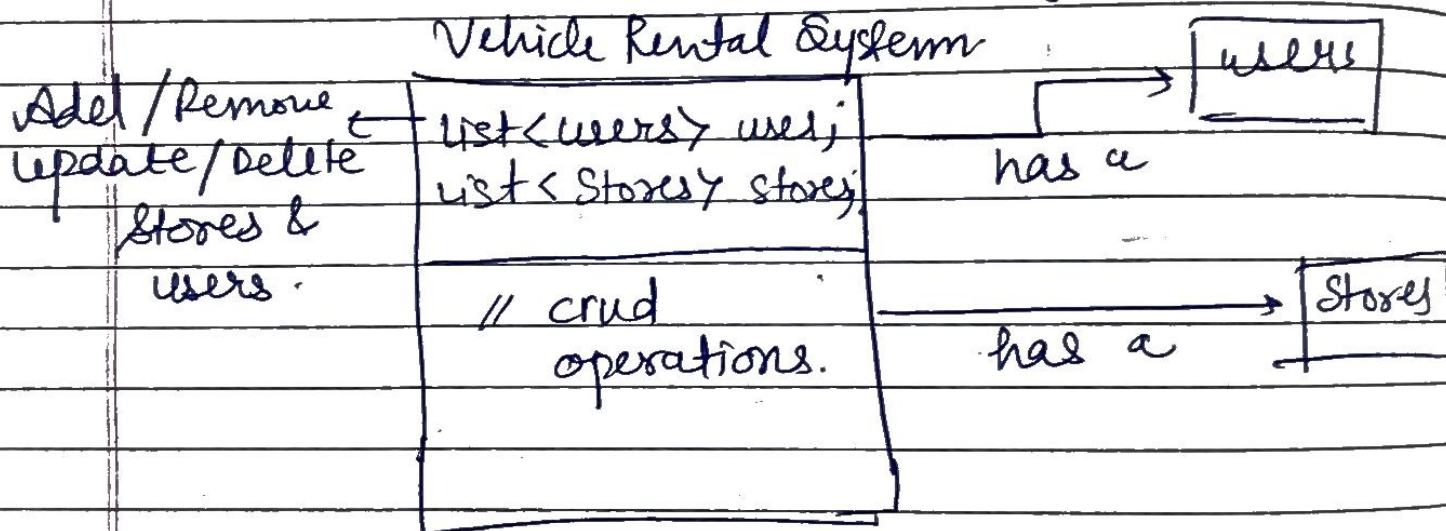 Vehicle Rental System
users
Add / Remove
update / Delete
Stores &
users.
list<users> user;
list<Stores> stores;
has a
// crud
operations.
Stores
has a